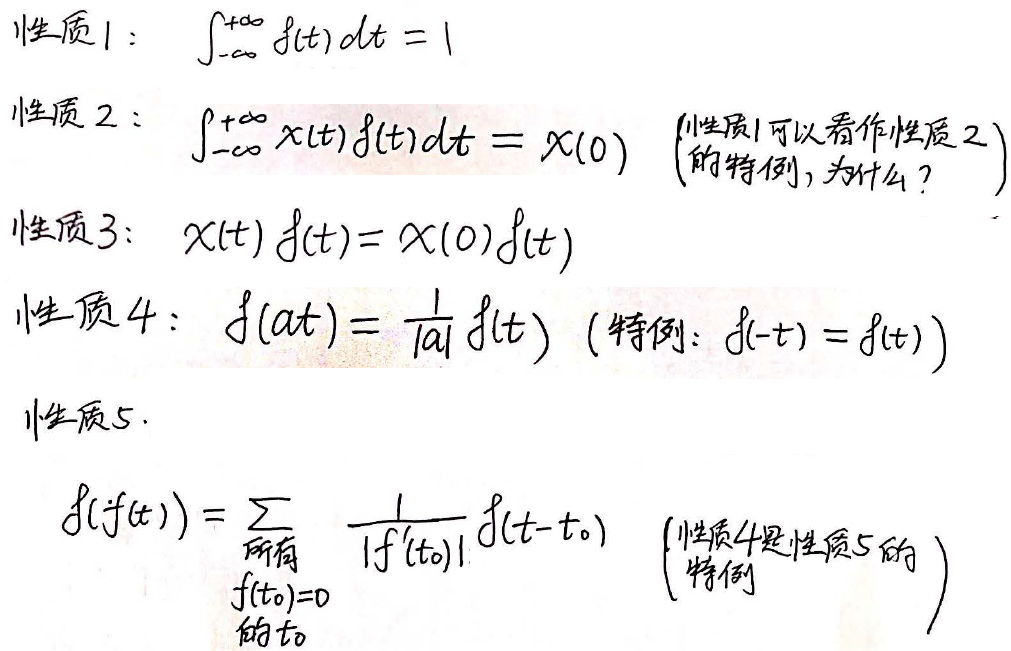 性质1: ∫_{-∞}^{+∞} δ(t) dt = 1
性质2: ∫_{-∞}^{+∞} x(t) δ(t) dt = x(0) (性质1可以看作性质2的特例,为什么?)
性质3: x(t) δ(t) = x(0) δ(t)
性质4: δ(at) = \frac{1}{|a|} δ(t) (特例: δ(-t) = δ(t))
性质5.
δ(f(t)) = ∑_{所有 f(t₀)=0 的 t₀} \frac{1}{|f'(t₀)|} δ(t-t₀) (性质4是性质5的特例)